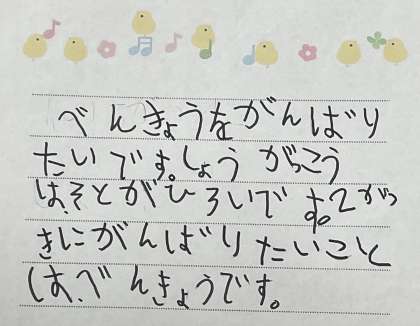 べんきょうをがんばり
たいです。しょうがっこう
は、そとがひろいです。2がっ
きにがんばりたいこと
は、べんきょうです。